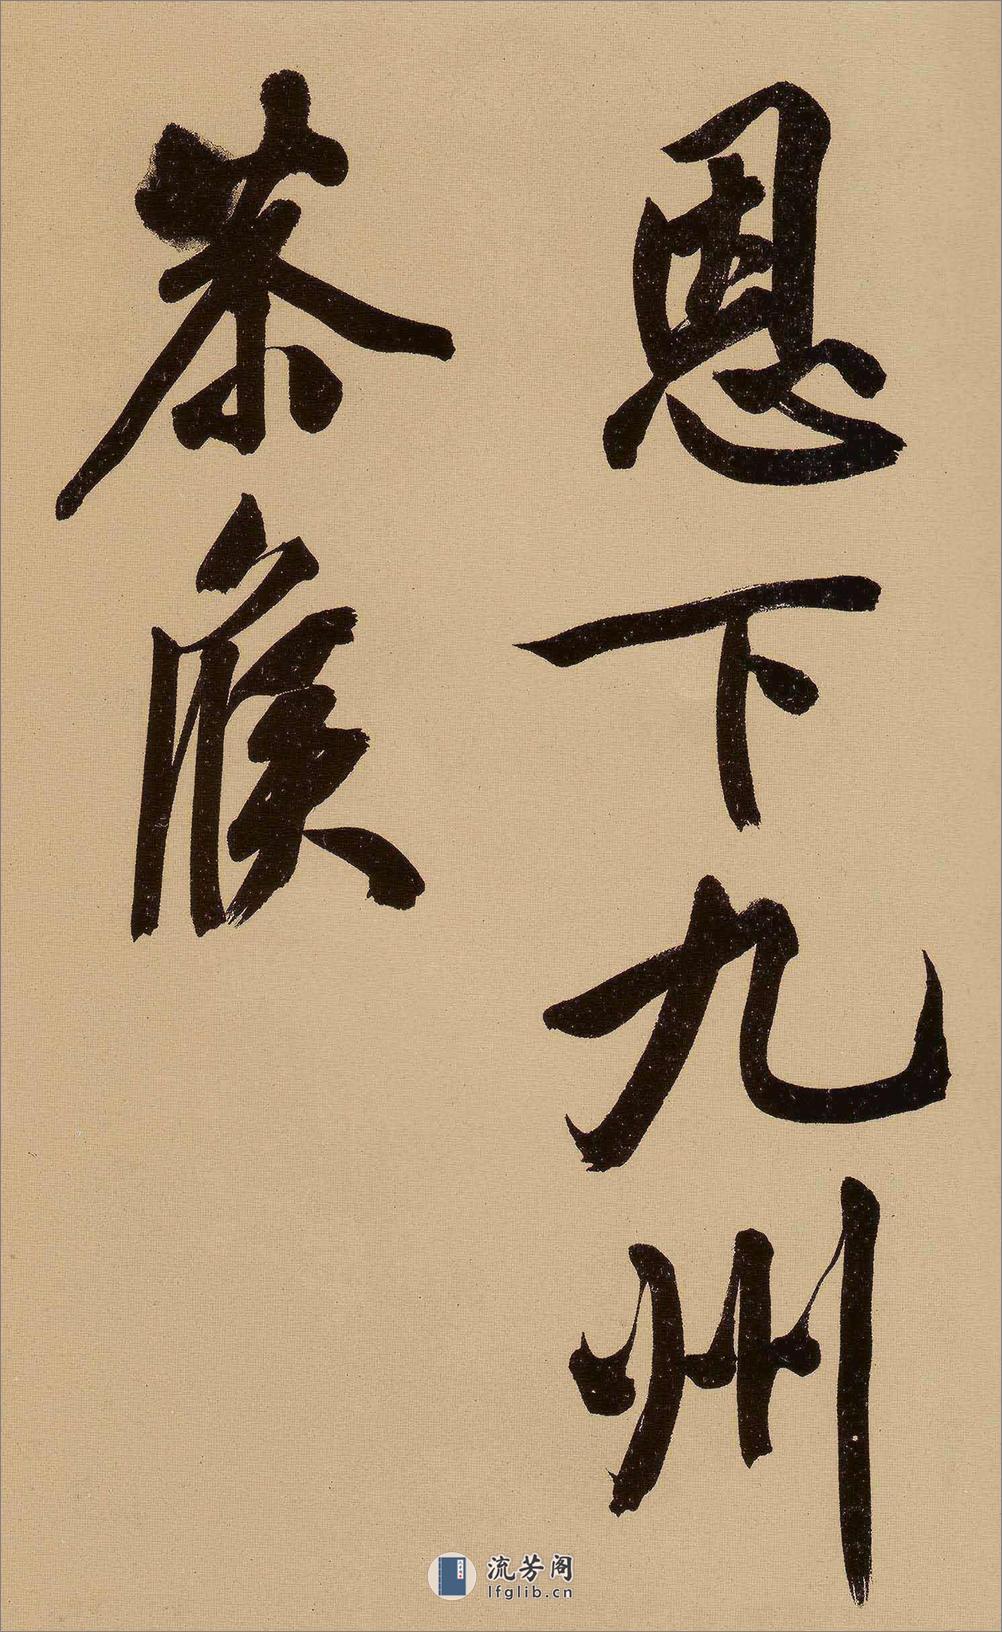 恩下九州
茶候
流芳阁
lfglib.cn